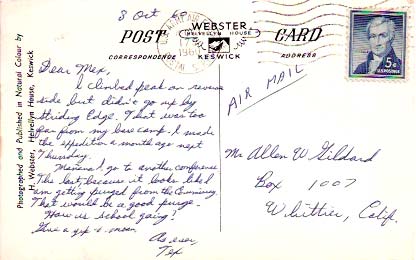 3 Oct
POST
WEBSTER
HELVELLYN HOUSE
KESWICK
CARD
CORRESPONDENCE
ADDRESS
5¢
U.S. POSTAGE
AIR MAIL
Photographed and Published in Natural Colour by
H. Webster, Helvellyn House, Keswick
Dear Mex,
I climbed peak on reverse
side but didn't go up by
Striding Edge. That was too
far from my base camp. I made
the expedition a month ago next
Thursday.
Mañana I go to another conference
The last, because it looks like I
am getting purged from the
That would be a good purge.
How is school going?
Give a to mom.
As ever,
Tex
Mr Allen W Gildard
Box 1007
Whittier, Calif.